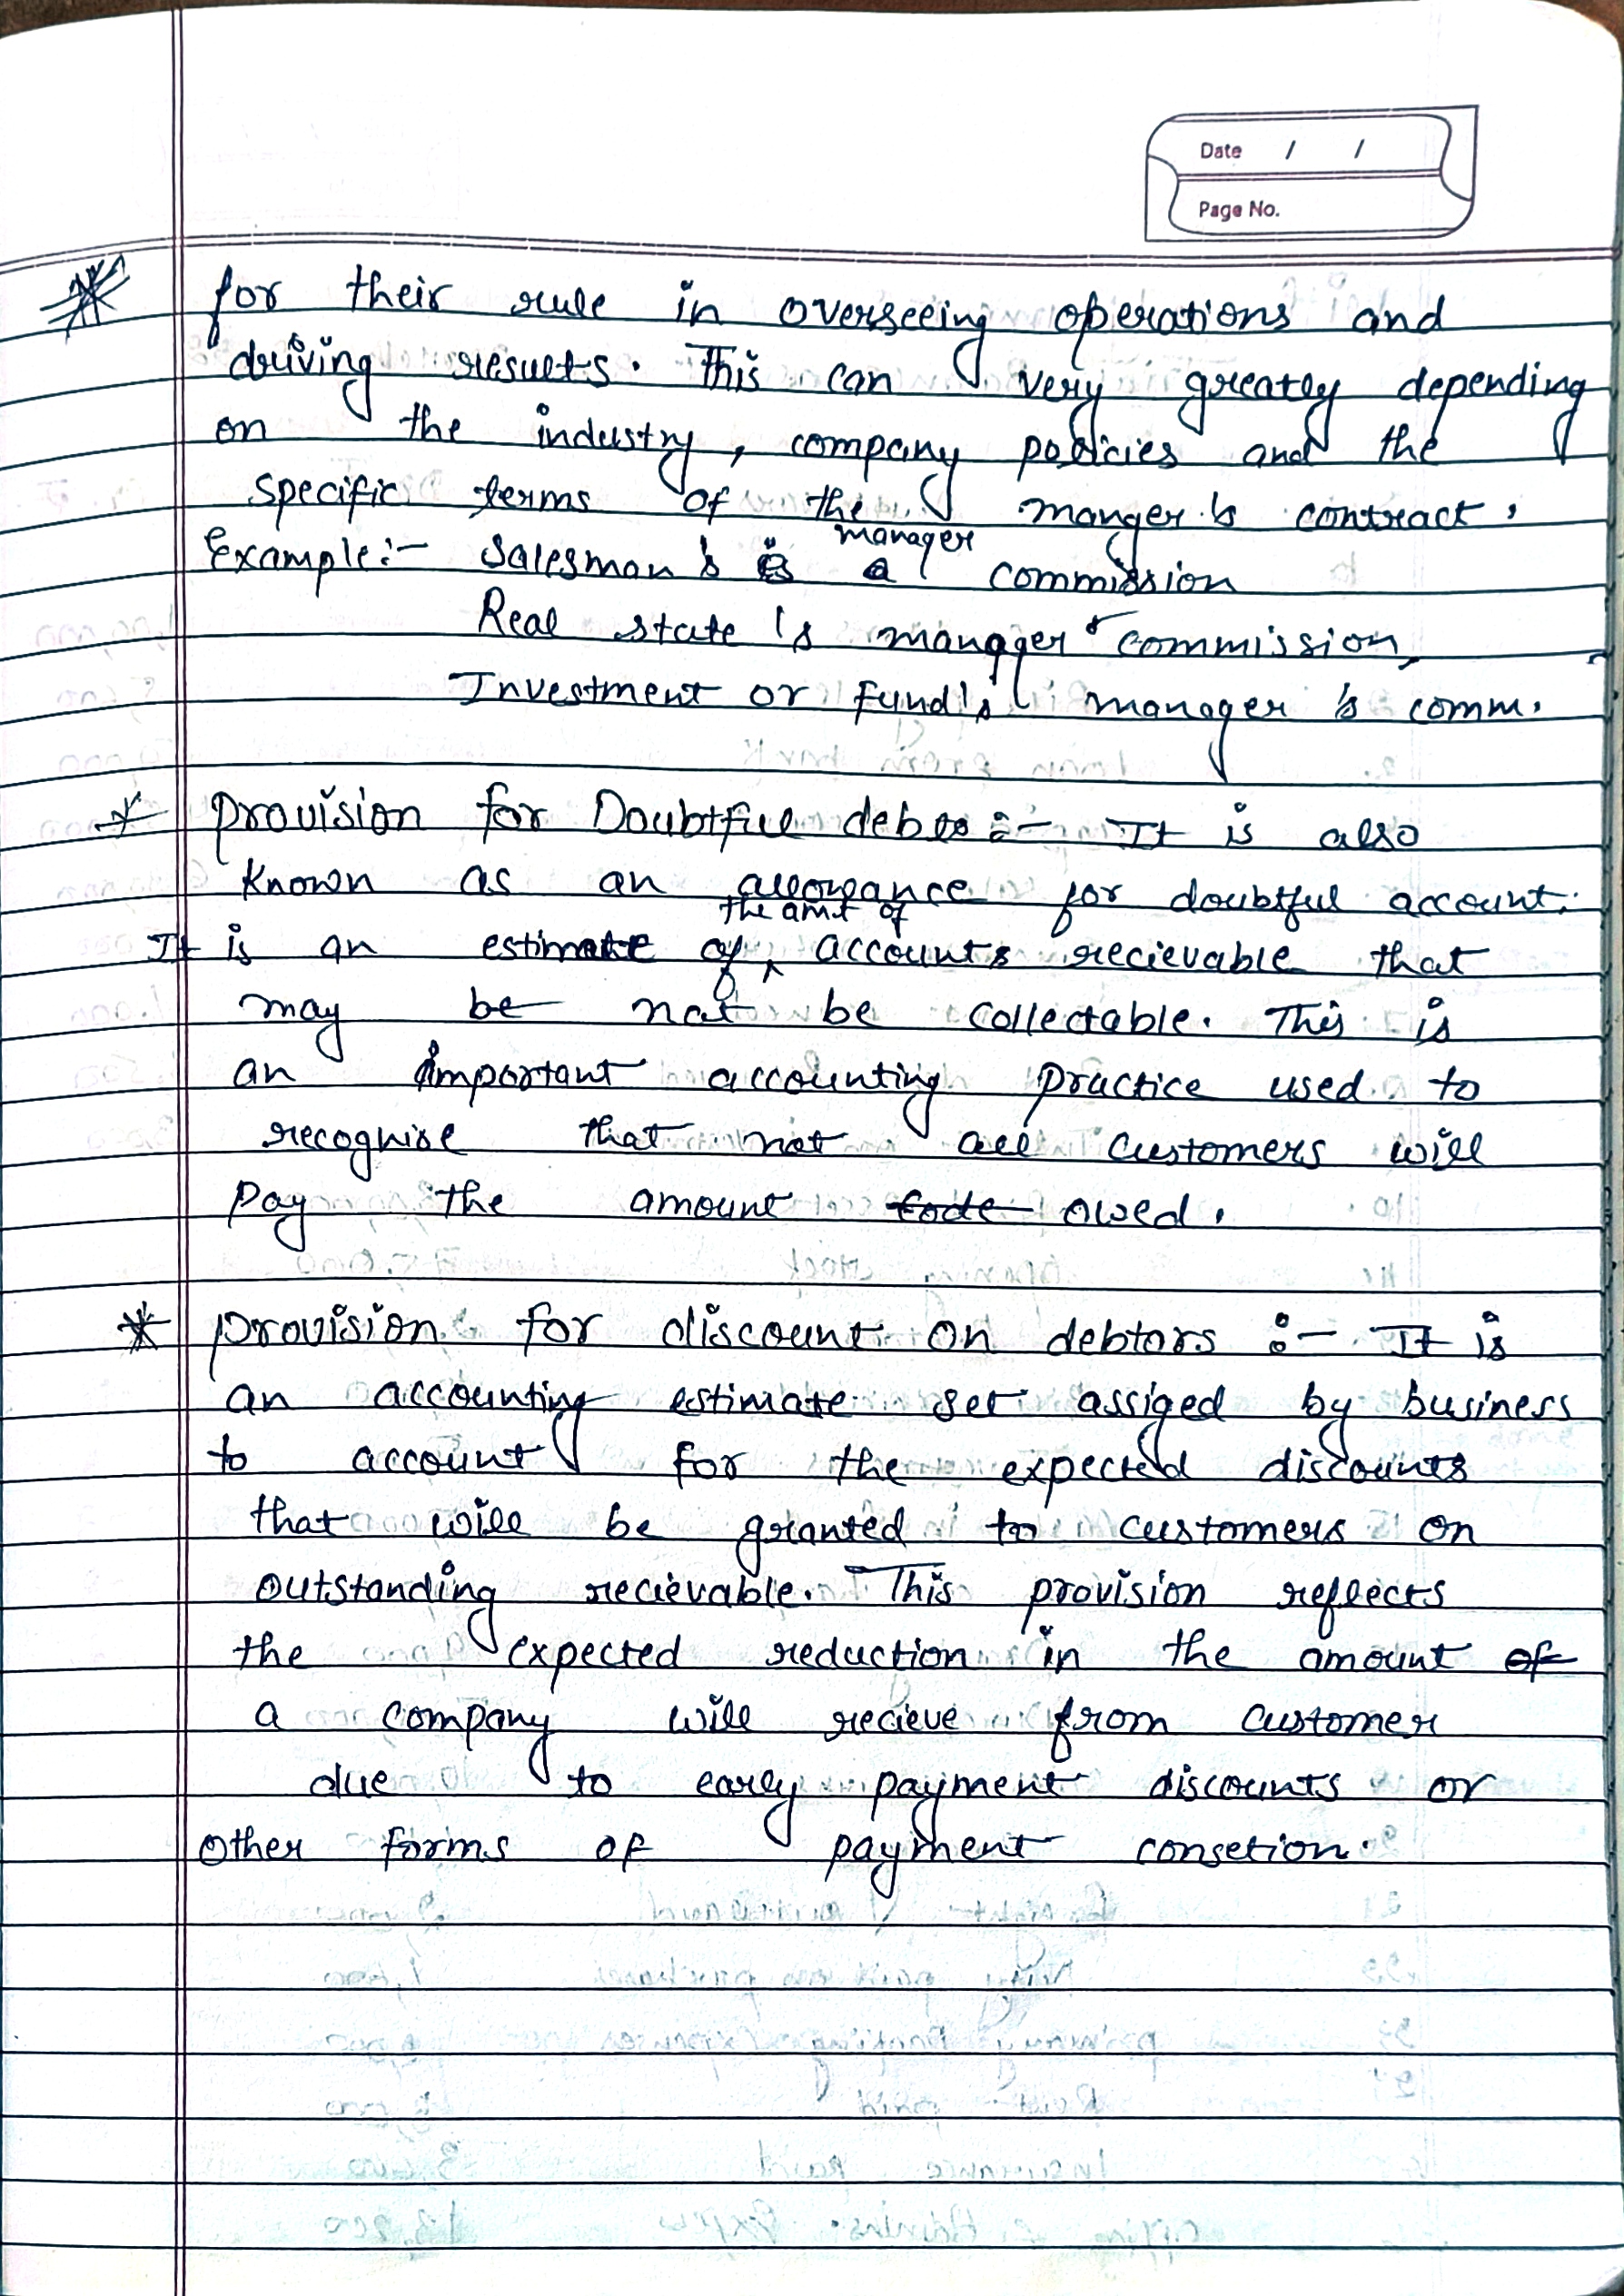 Date / /
Page No.
for their rule in overseeing operations and
driving results. This can very greatly depending
on the industry, company policies and the
specific terms of the manger's contract.
Example:- Salesman's manager commission
Real state's manager's commission,
Investment or Fund's manager's comm.
* provision for Doubtful debts :- It is also
known as an allowance for doubtful account.
It is an estimate of the amt of accounts recievable that
may be not be collectable. This is
an important accounting practice used to
recognise that not all customers will
pay the amount owed.
* provision for discount on debtors :- It is
an accounting estimate set assiged by business
to account for the expected discounts
that will be granted to customers on
outstanding recievable. This provision reflects
the expected reduction in the amount
a company will recieve from customer
due to early payment discounts or
other forms of payment consetion.